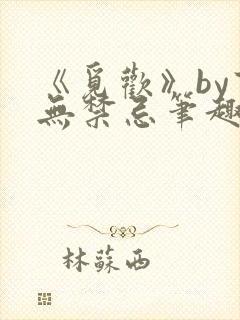 《覓歡》by
無禁忌筆趣
林蘇西